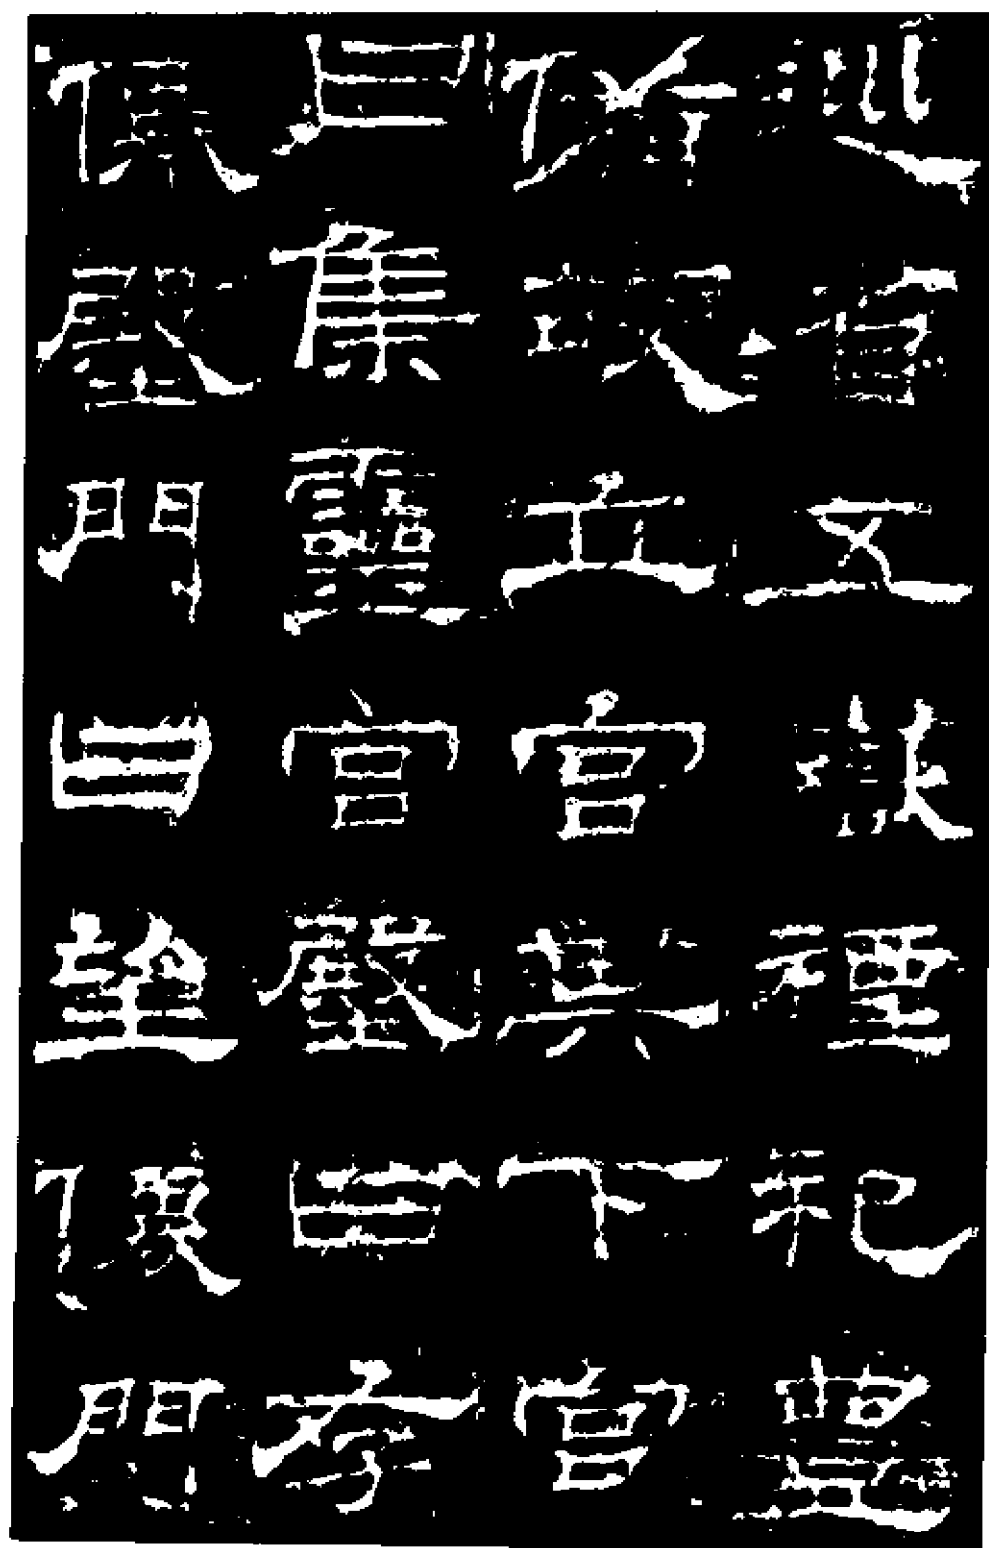 巡省五嶽禋祀豐
備故立宮其下宮
曰集靈宮壂曰存
僊壂門曰望僊門